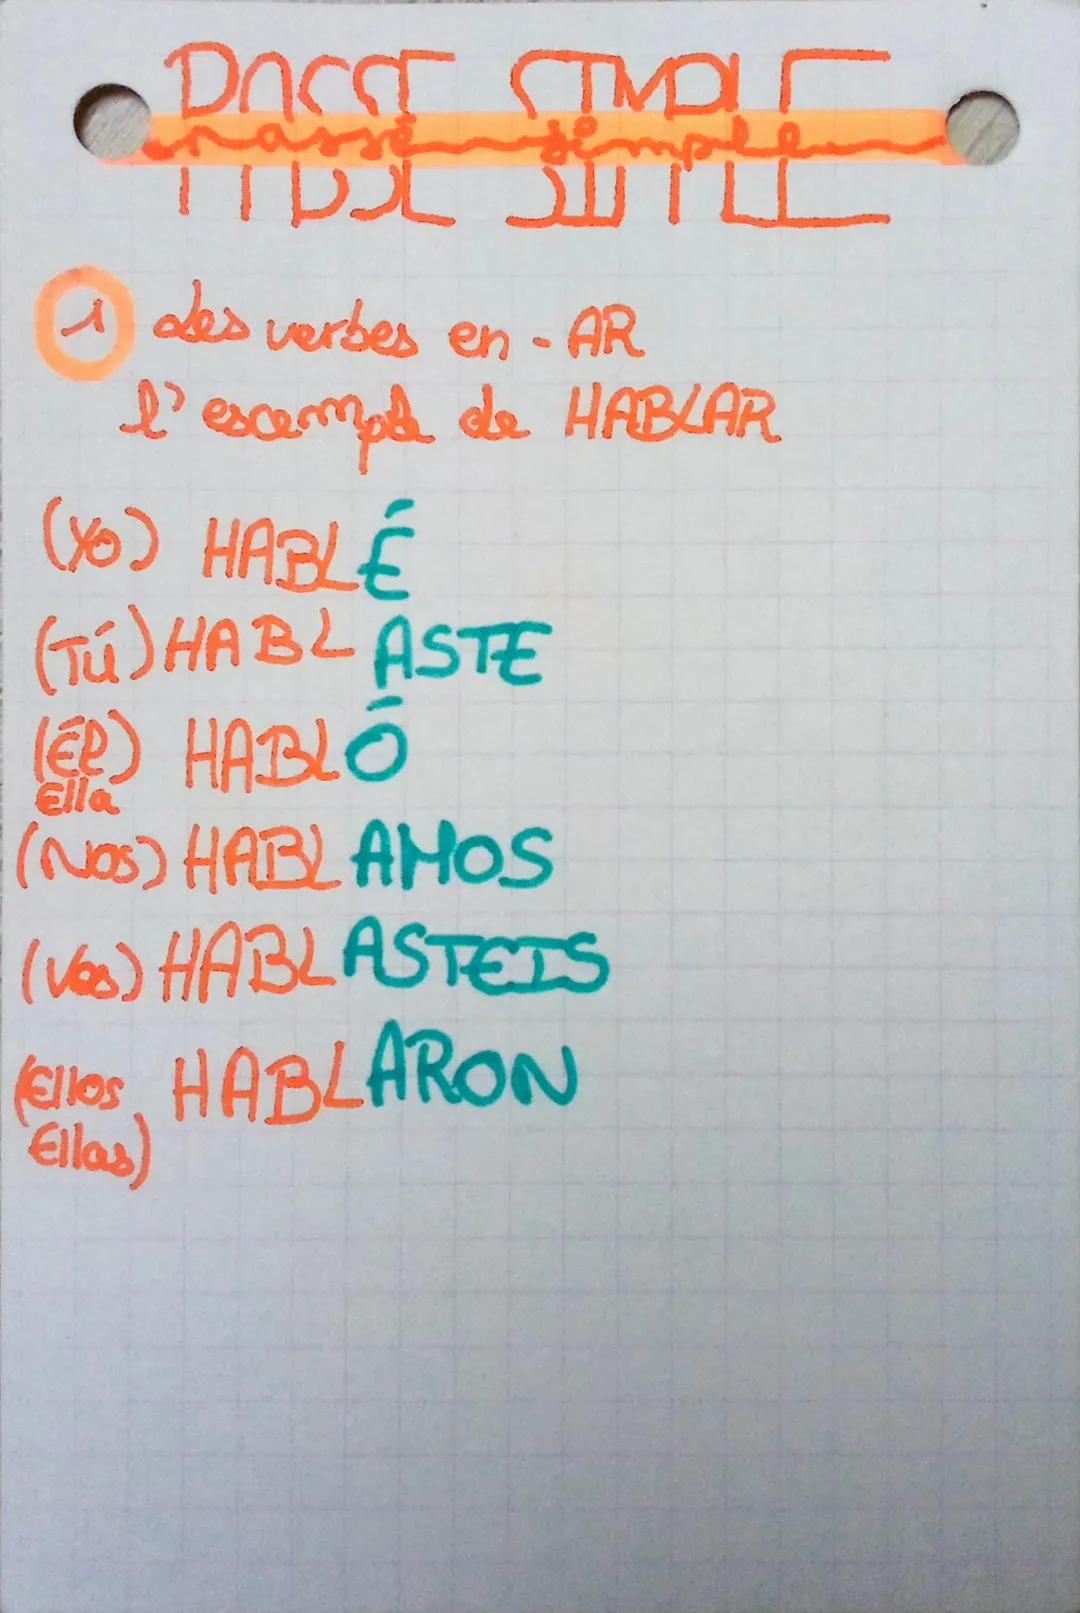 PASSE SIMPLE
passé simple
1 Les verbes en - AR
l'exemple de HABLAR
(Yo) HABLÉ
(Tú) HABLASTE
(Él) HABLÓ
Ella
(Nos) HABLAMOS
(Vos) HABLASTEIS
(Ellos, HABLARON
Ellas)